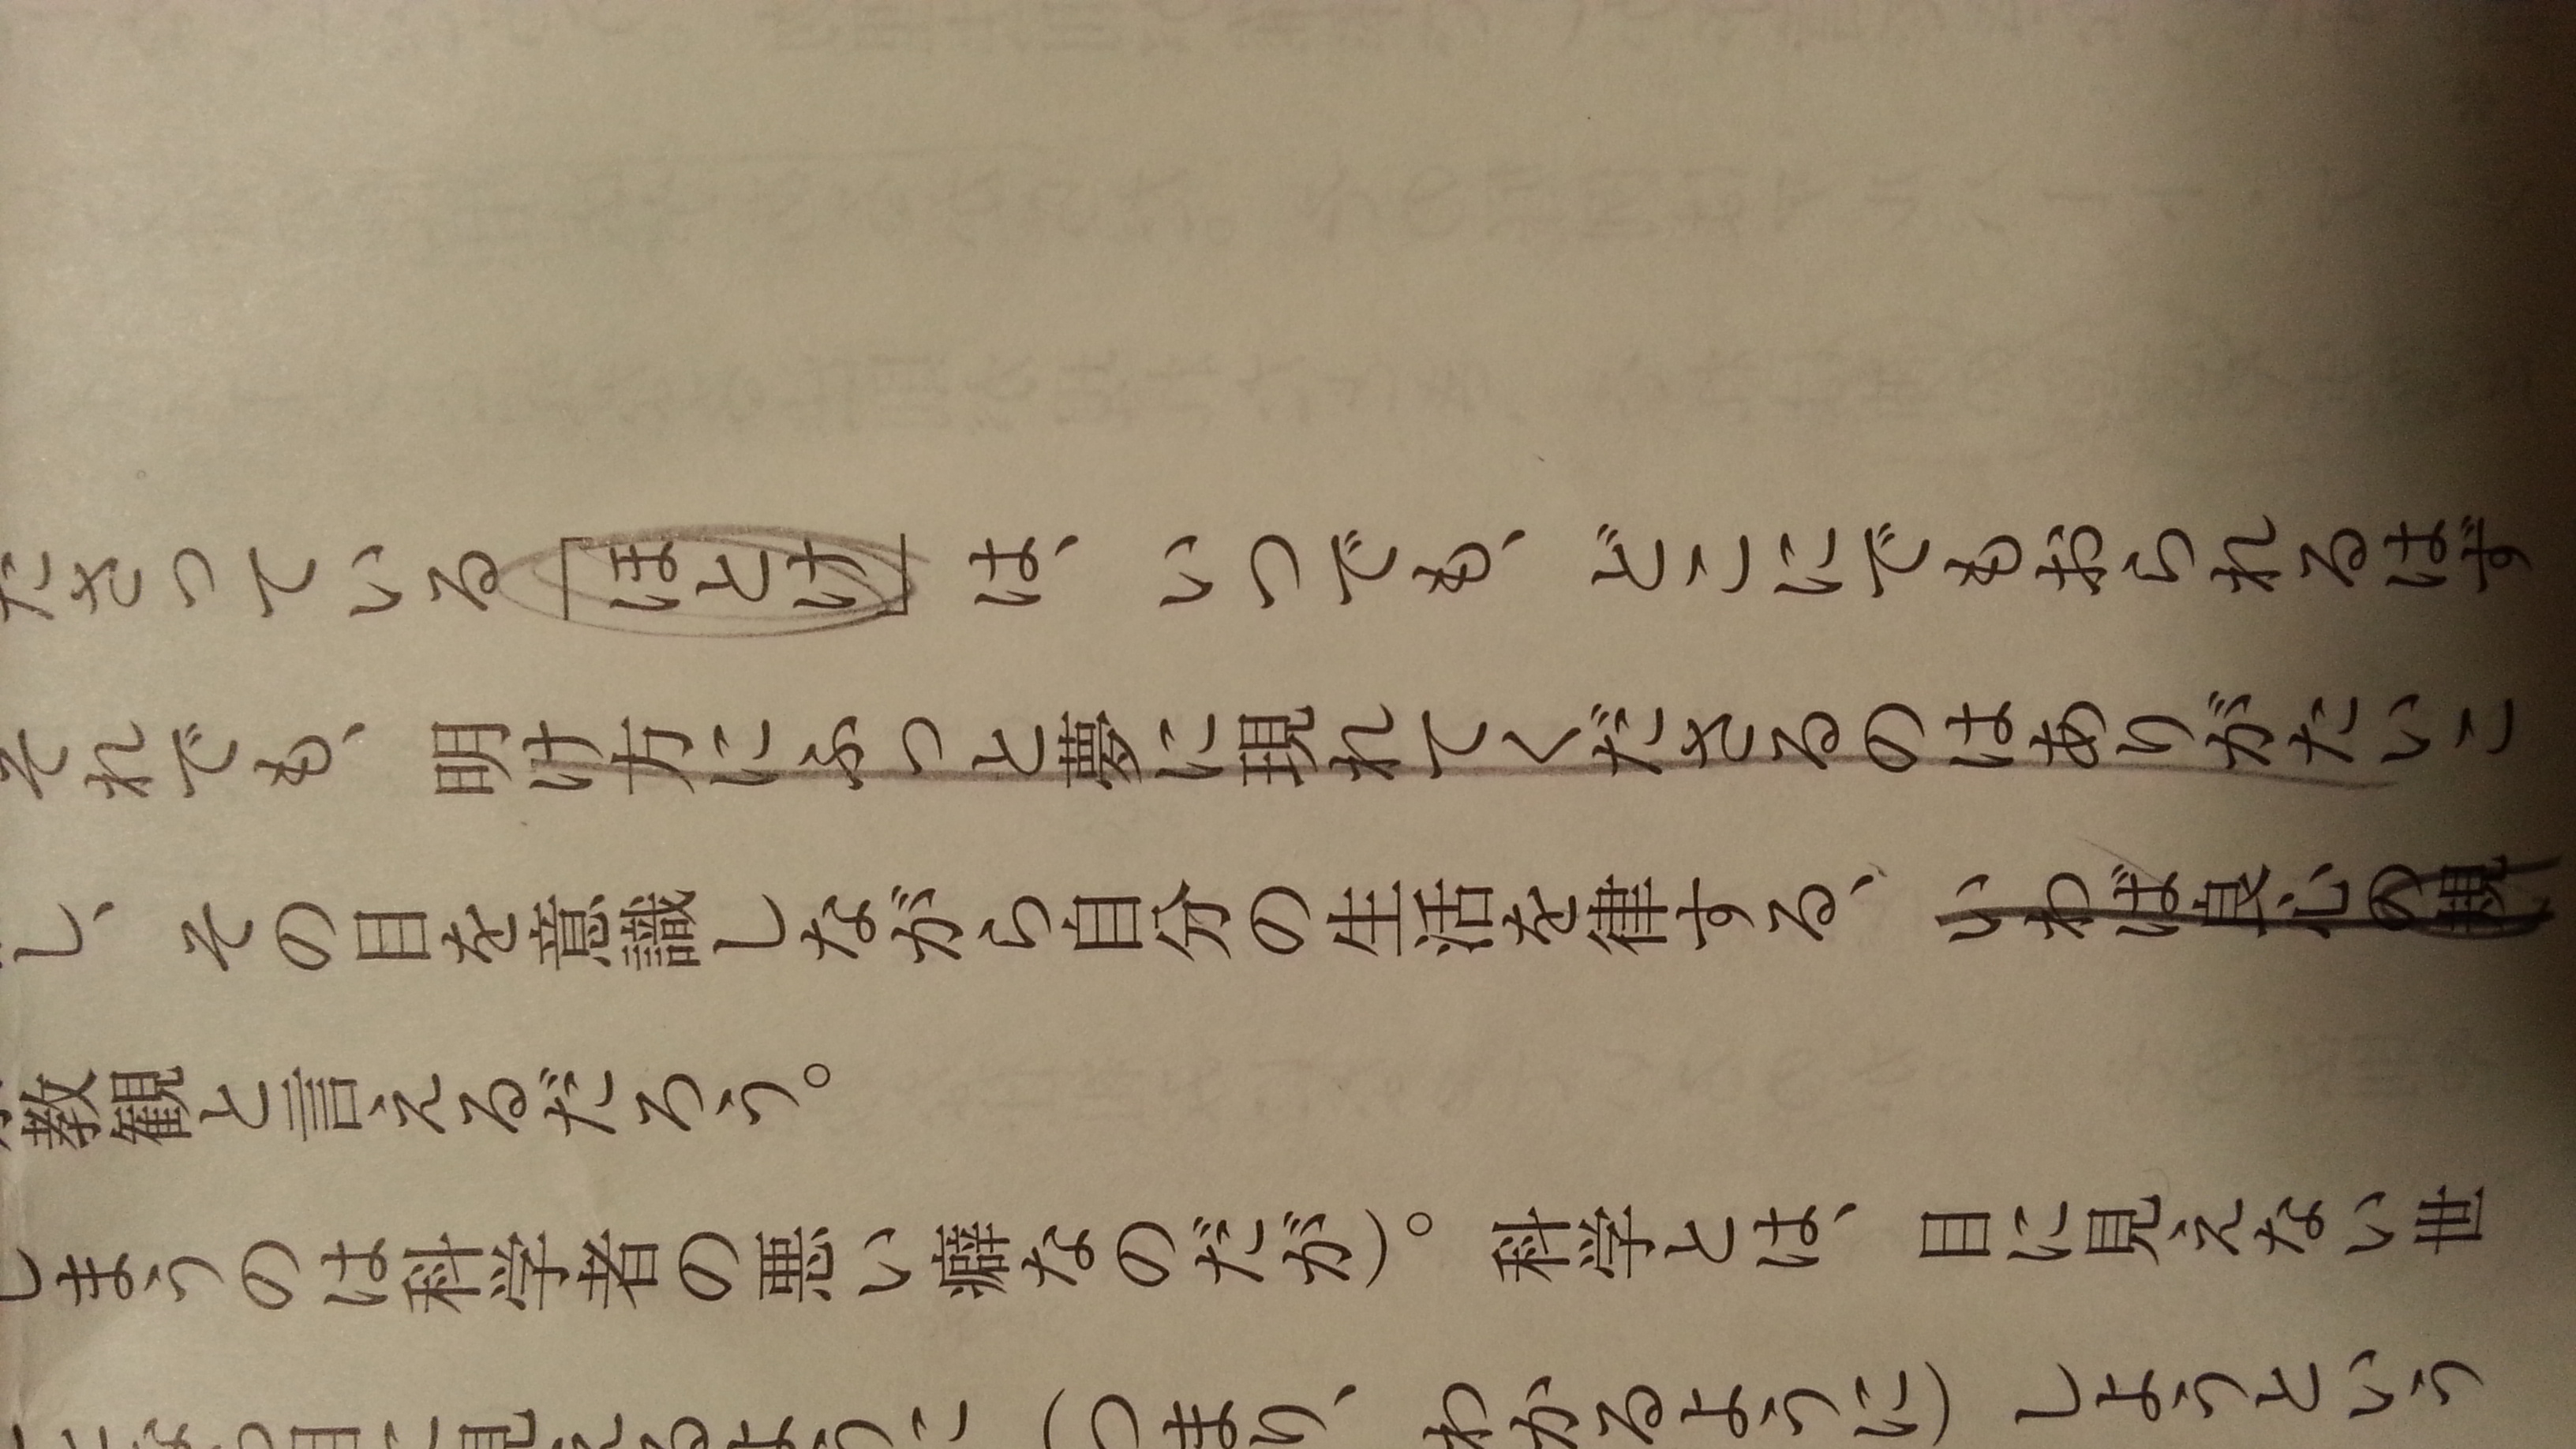 ださっている「ほとけ」は、いつでも、どこにでもおられるはず
それでも、明け方にふっと夢に現れてくださるのはありがたいこ
し、その目を意識しながら自分の生活を律する、いわば良心の現
教観と言えるだろう。
しまうのは科学者の悪い癖なのだが）。科学とは、目に見えない世
目に見えるように（つまり、わかるように）しようという